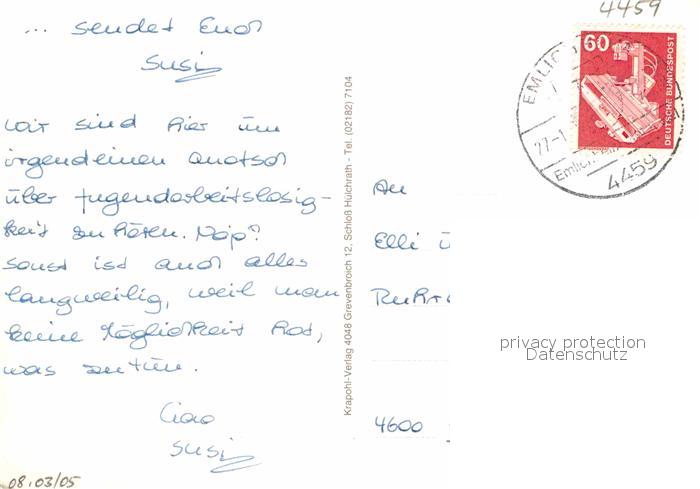 ... sendet Euch
Susi
Wir sind hier um
irgendeinen Quatsch
über Jugendarbeitslosig-
keit zu hören. Naja?
Sonst ist auch alles
langweilig, weil man
keine Möglichkeit hat,
was zu tun.
Ciao
Susi
08.03/05
Krapohl-Verlag 4048 Grevenbroich 12, Schloß Hülchrath - Tel. (02182) 7104
4459
60
DEUTSCHE BUNDESPOST
EMLICH
27-1
Emlichheim
4459
An
Elli
Ruhr
4600
privacy protection
Datenschutz